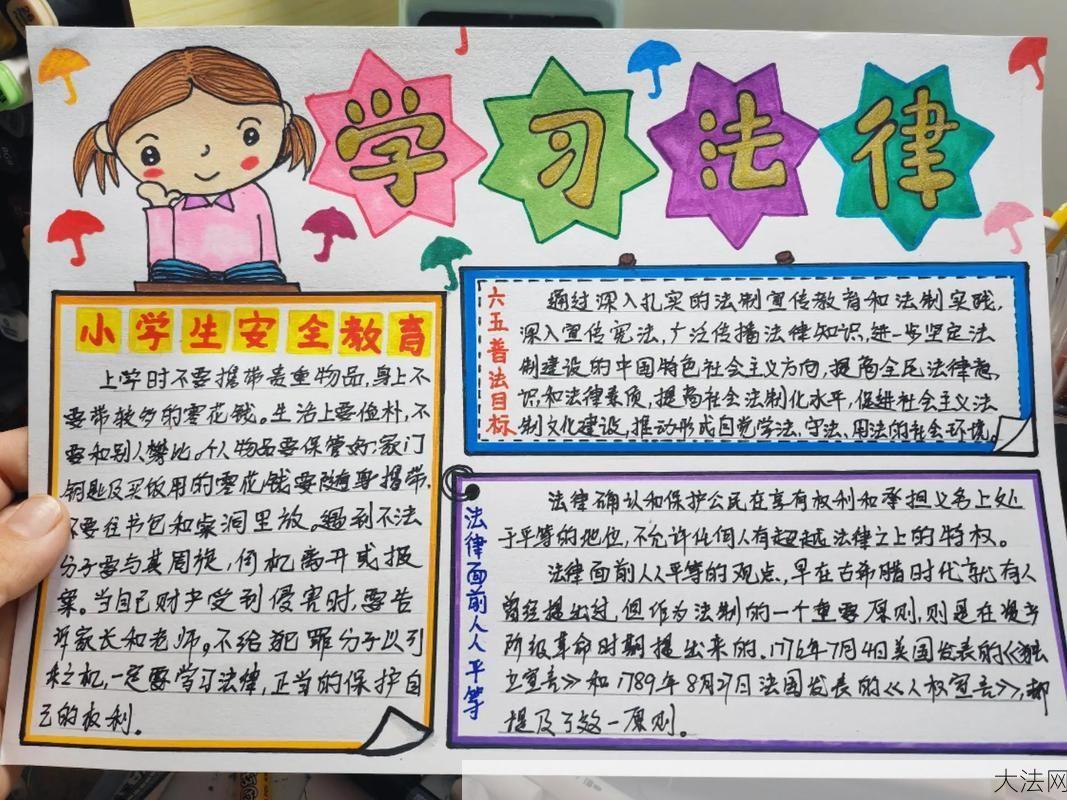 学习法律
小学生安全教育
上学时不要携带贵重物品,身上不
要带较多的零花钱。生活上要俭朴,不
要和别人攀比。个人物品要保管好;家门
钥匙及买饭用的零花钱要随身携带,
不要在书包和桌洞里放。遇到不法
分子要与其周旋,伺机离开或报
案。当自己财产受到侵害时,要告
诉家长和老师。不给犯罪分子以可
乘之机,一定要学习法律,正当的保护自
己的权利。
六五普法目标
通过深入扎实的法制宣传教育和法制实践,
深入宣传宪法,广泛传播法律知识,进一步坚定法
制建设的中国特色社会主义方向,提高全民法律意
识和法律素质,提高社会法制化水平,促进社会主义法
制文化建设,推动形成自觉学法、守法、用法的社会环境。
法律面前人人平等
法律确认和保护公民在享有权利和承担义务上处
于平等的地位,不允许任何人有超越法律之上的特权。
法律面前人人平等的观点,早在古希腊时代就有人
曾经提出过,但作为法制的一个重要原则,则是在资产
阶级革命时期提出来的.1776年7月4日美国发表的《独
立宣言》和1789年8月27日法国发表的《人权宣言》,都
提及了这一原则。
大法网